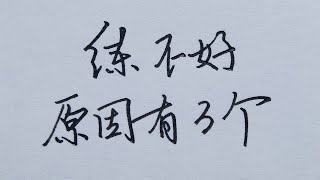 练不好
原因有3个